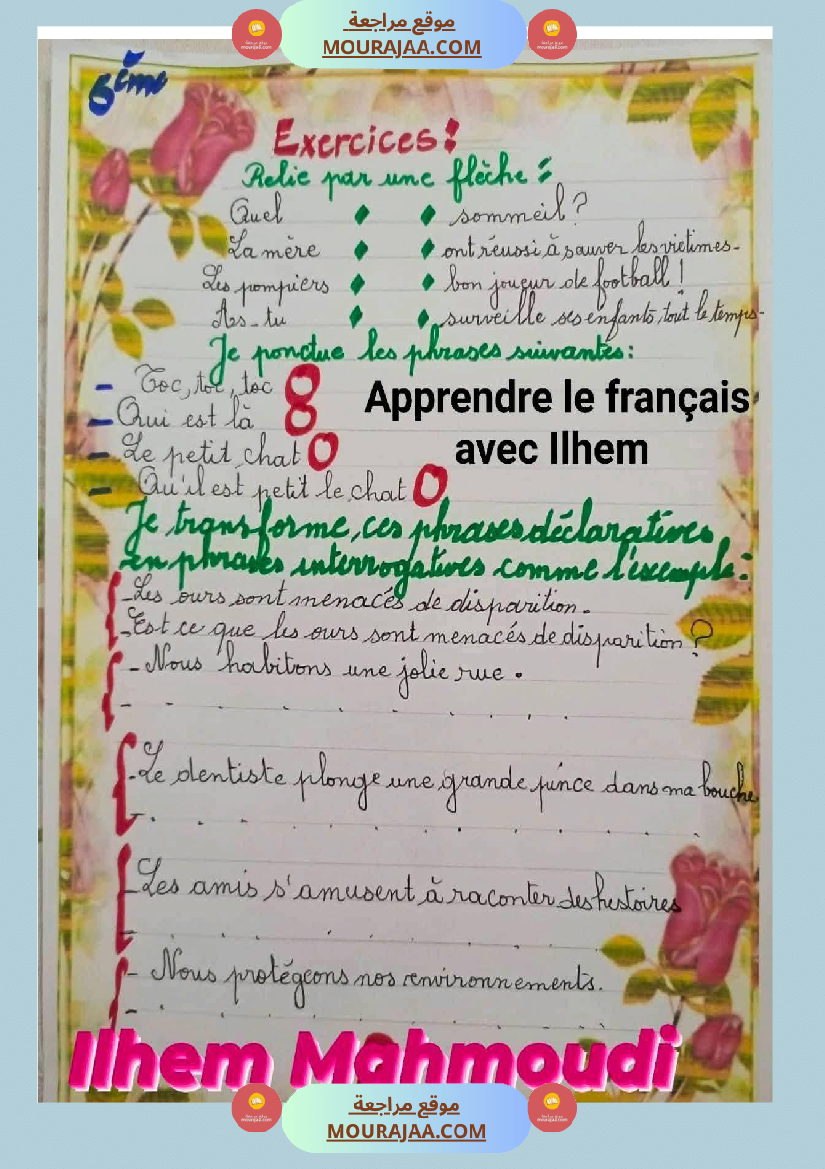 موقع مراجعة
MOURAJAA.COM
6ème
Exercices:
Relie par une flèche :
Quel sommeil ?
La mère ont réussi à sauver les victimes.
Les pompiers bon joueur de football !
As-tu surveille ses enfants tout le temps.
Je ponctue les phrases suivantes :
- Toc, toc, toc
- Qui est là
- Le petit chat
- Qu'il est petit le chat
Apprendre le français
avec Ilhem
Je transforme ces phrases déclaratives
en phrases interrogatives comme l'exemple :
- Les ours sont menacés de disparition.
- Est ce que les ours sont menacés de disparition ?
- Nous habitons une jolie rue.
- Le dentiste plonge une grande pince dans ma bouche
- Les amis s'amusent à raconter des hestoires
- Nous protégeons nos environnements.
Ilhem Mahmoudi
موقع مراجعة
MOURAJAA.COM